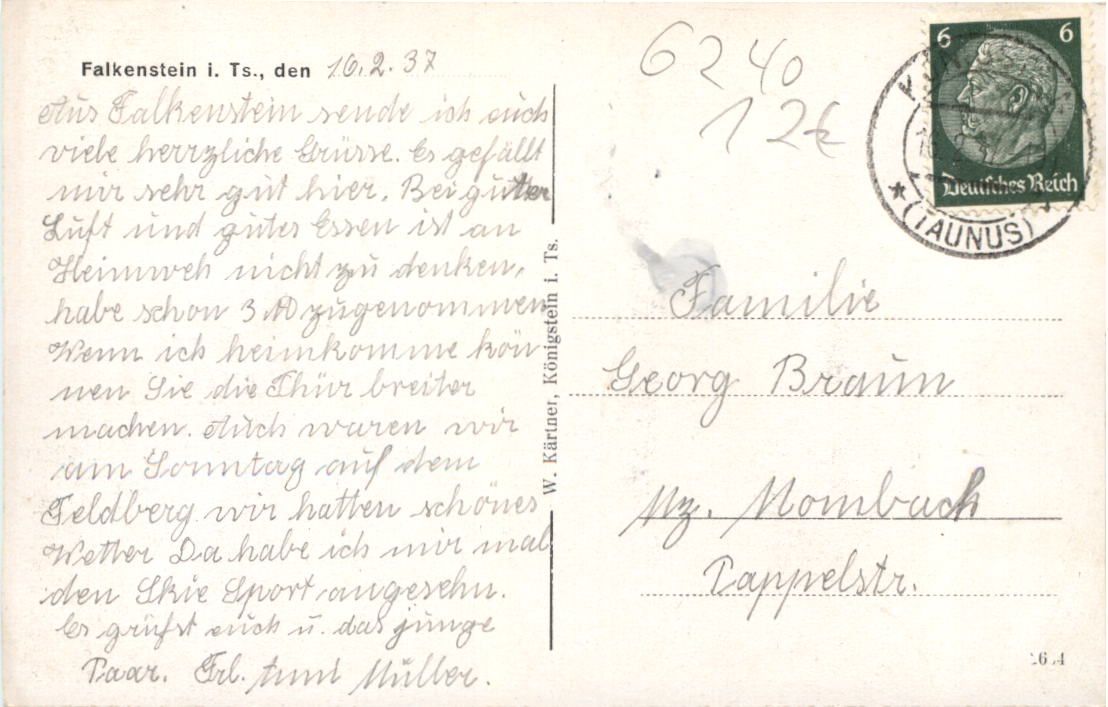 Falkenstein i. Ts., den 10.2.37
Aus Falkenstein sende ich euch
viele herrzliche Grüsse. Es gefällt
mir sehr gut hier. Bei guter
Luft und gutes Essen ist an
Heimweh nicht zu denken,
habe schon 3 ℔ zugenommen
Wenn ich heimkomme kön
nen Sie die Thür breiter
machen. Auch waren wir
am Sonntag auf dem
Feldberg wir hatten schönes
Wetter Da habe ich mir mal
den Skie Sport angesehn.
Es grüßt euch u. das junge
Paar. Frl. Müller.
W. Kärtner, Königstein i. Ts.
6240
12€
6 6
Deutsches Reich
★ (TAUNUS)
Familie
Georg Braun
Mz. Mombach
Pappelstr.